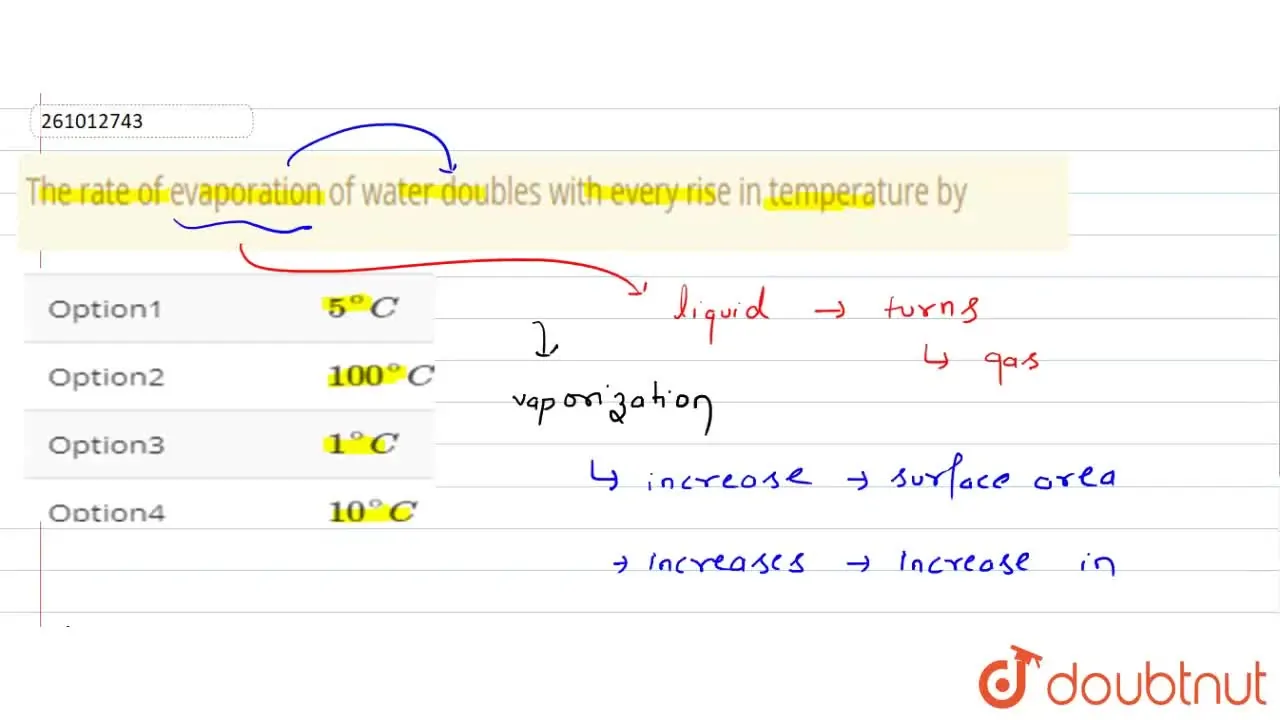 261012743
The rate of evaporation of water doubles with every rise in temperature by
Option1 5°C
liquid → turns
↳ gas
Option2 100°C
vaporization
Option3 1°C
↳ increase → surface area
Option4 10°C
→ increases → increase in
doubtnut